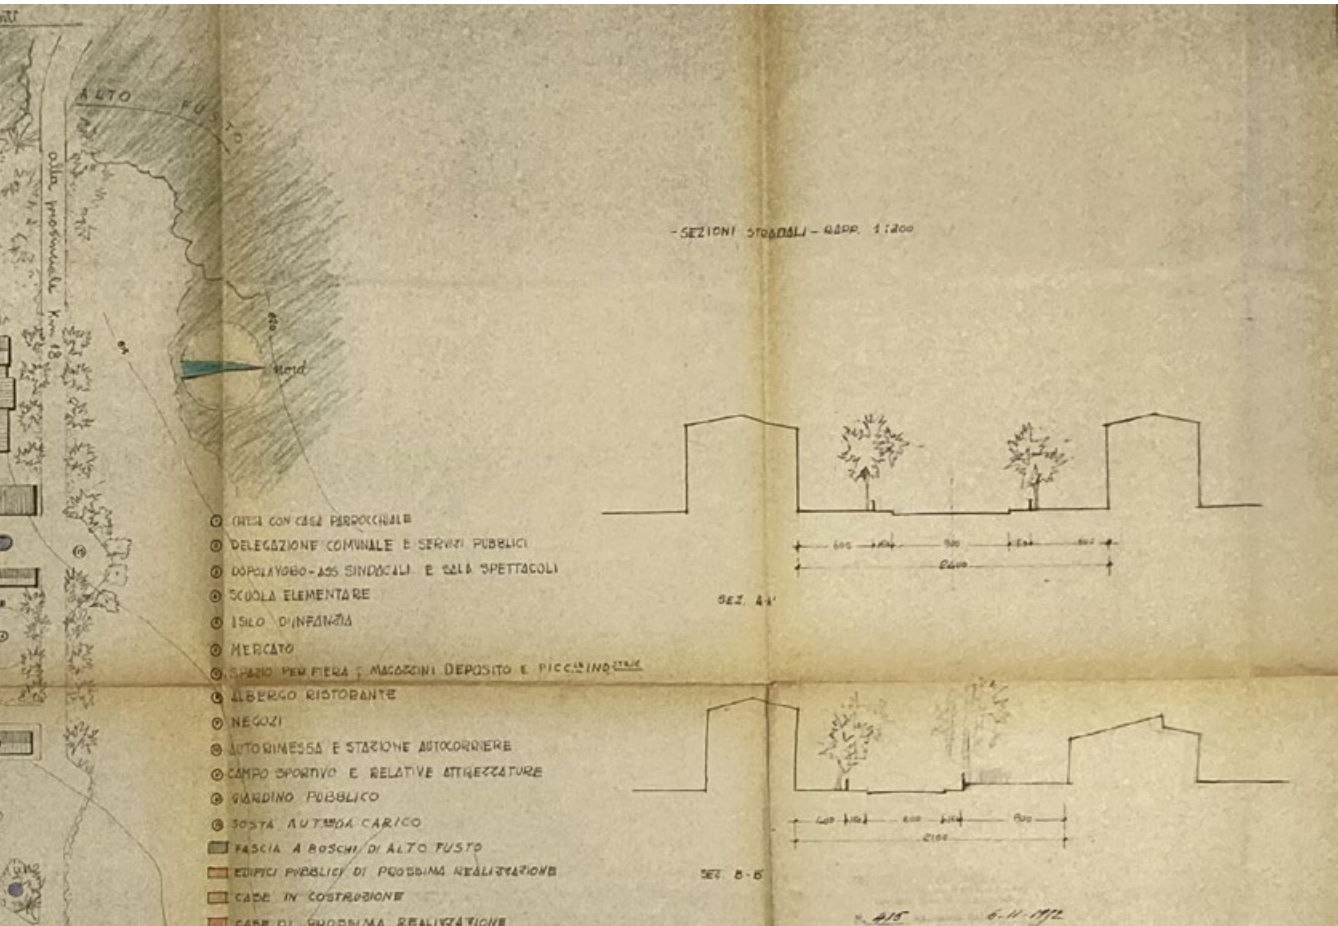 ALTO FUSTO
alla provinciale Km 18
820
nord
- SEZIONI STRADALI - RAPP. 1:200
① CHIESA CON CASA PARROCCHIALE
② DELEGAZIONE COMUNALE E SERVIZI PUBBLICI
③ DOPOLAVORO - ASS SINDACALI E SALA SPETTACOLI
④ SCUOLA ELEMENTARE
⑤ ASILO D'INFANZIA
⑥ MERCATO
⑦ SPAZIO PER FIERA; MAGAZZINI DEPOSITO E PICC.LE INDSTRIE
⑧ ALBERGO RISTORANTE
⑨ NEGOZI
⑩ AUTORIMESSA E STAZIONE AUTOCORRIERE
⑪ CAMPO SPORTIVO E RELATIVE ATTREZZATURE
⑫ GIARDINO PUBBLICO
⑬ SOSTA DA CARICO
FASCIA A BOSCHI DI ALTO FUSTO
EDIFICI PUBBLICI DI PROSSIMA REALIZZAZIONE
CASE IN COSTRUZIONE
CASE DI PROSSIMA REALIZZAZIONE
2400
SEZ. A-A'
2100
SEZ. B-B'
415